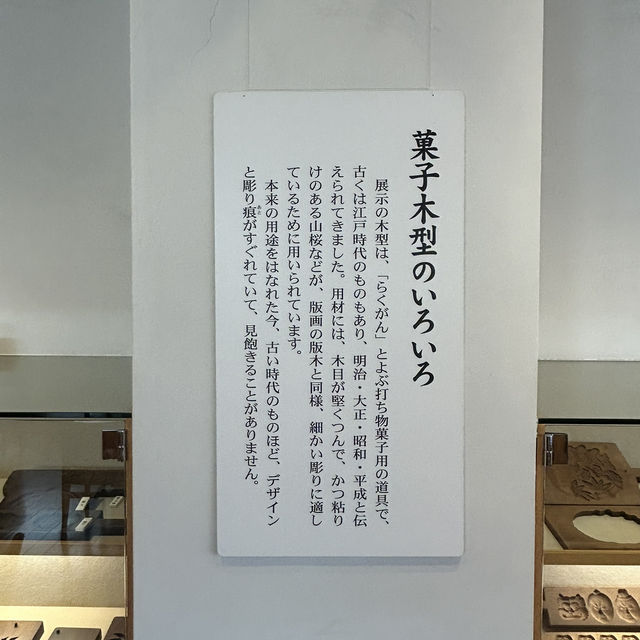 菓子木型のいろいろ
展示の木型は、「らくがん」とよぶ打ち物菓子用の道具で、
古くは江戸時代のものもあり、明治・大正・昭和・平成と伝
えられてきました。用材には、木目が堅くつんで、かつ粘り
けのある山桜などが、版画の版木と同様、細かい彫りに適し
ているために用いられています。
本来の用途をはなれた今、古い時代のものほど、デザイン
と彫り痕がすぐれていて、見飽きることがありません。
あと